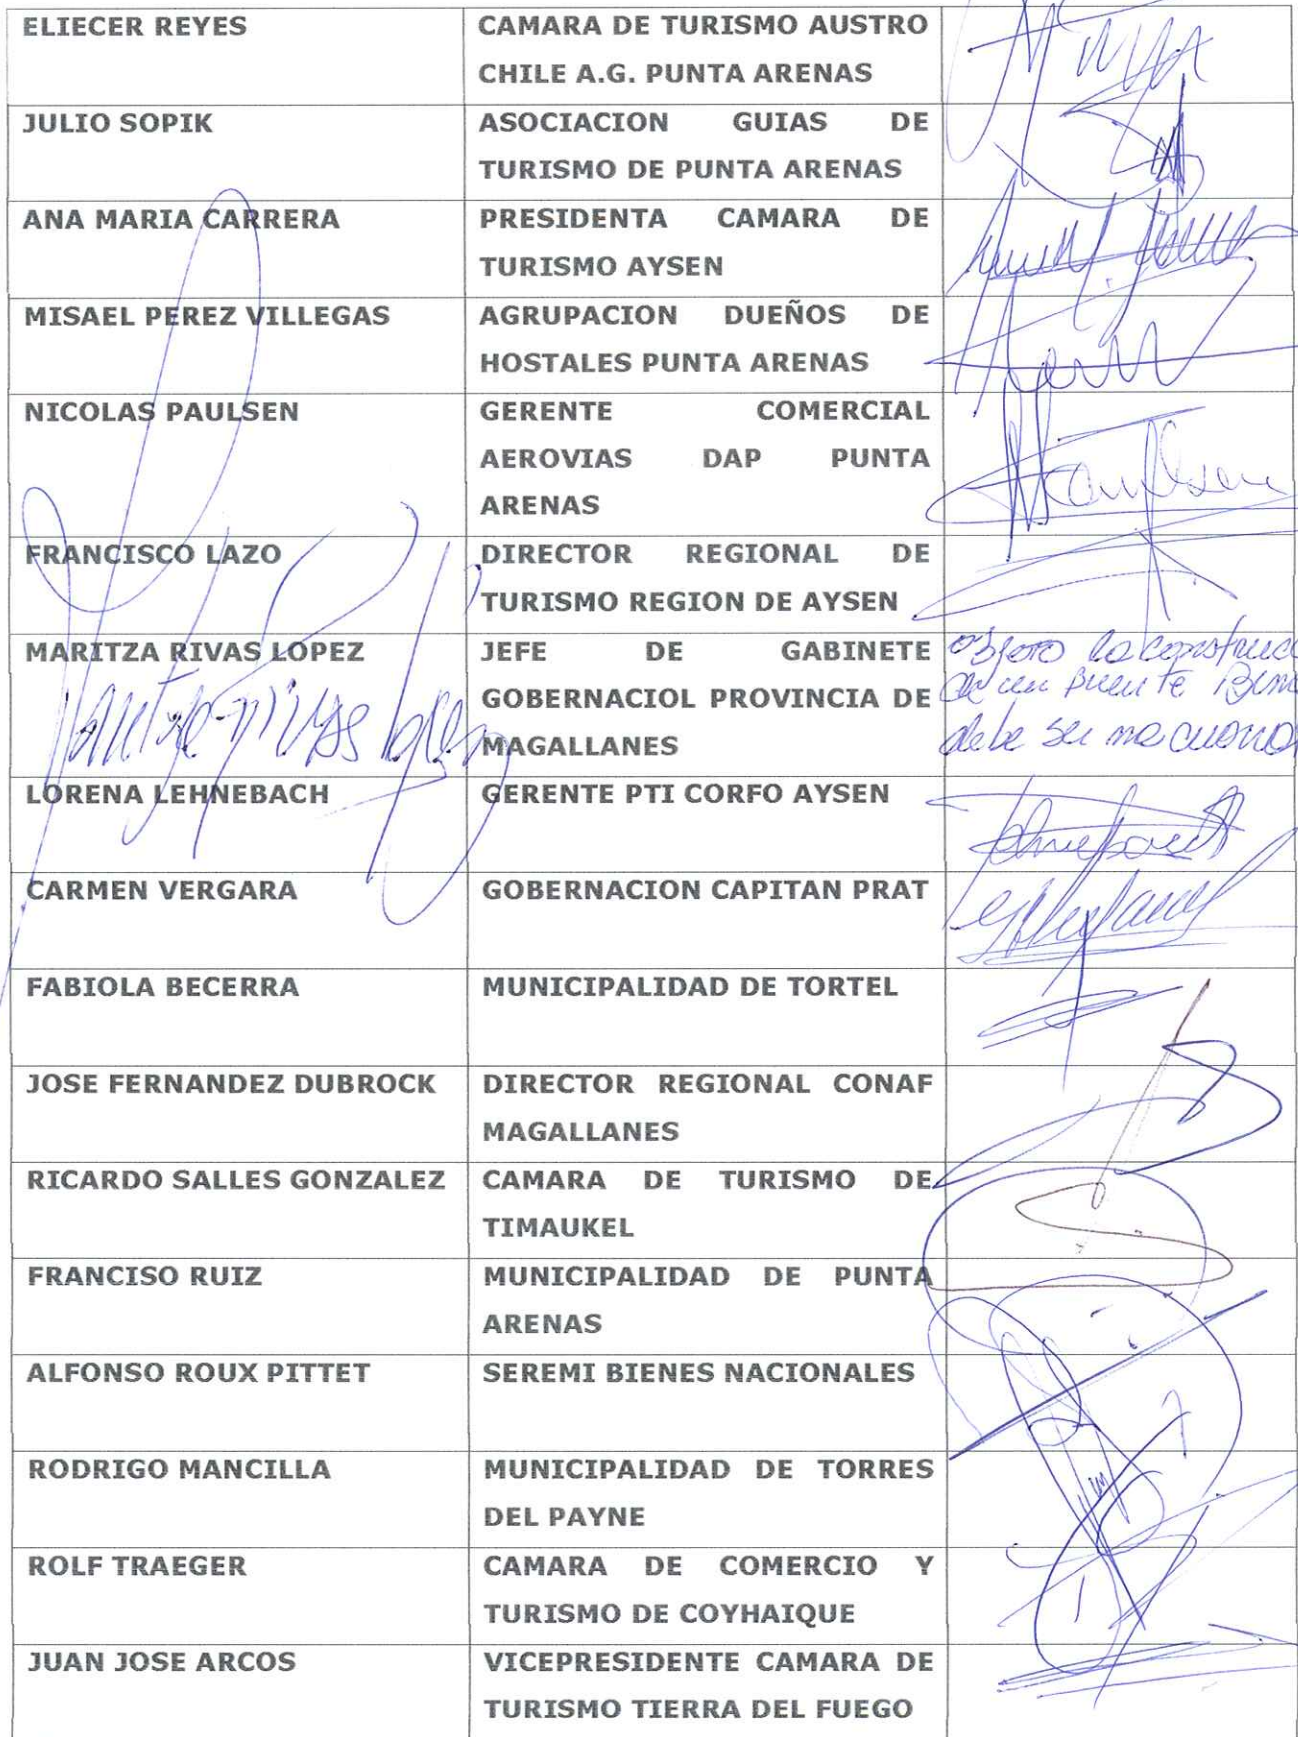 ELIECER REYES
CAMARA DE TURISMO AUSTRO
CHILE A.G. PUNTA ARENAS
JULIO SOPIK
ASOCIACION GUIAS DE
TURISMO DE PUNTA ARENAS
ANA MARIA CARRERA
PRESIDENTA CAMARA DE
TURISMO AYSEN
MISAEL PEREZ VILLEGAS
AGRUPACION DUEÑOS DE
HOSTALES PUNTA ARENAS
NICOLAS PAULSEN
GERENTE COMERCIAL
AEROVIAS DAP PUNTA
ARENAS
FRANCISCO LAZO
DIRECTOR REGIONAL DE
TURISMO REGION DE AYSEN
MARITZA RIVAS LOPEZ
JEFE DE GABINETE
GOBERNACIOL PROVINCIA DE
MAGALLANES
la construc
un puente
debe ser
LORENA LEHNEBACH
GERENTE PTI CORFO AYSEN
CARMEN VERGARA
GOBERNACION CAPITAN PRAT
FABIOLA BECERRA
MUNICIPALIDAD DE TORTEL
JOSE FERNANDEZ DUBROCK
DIRECTOR REGIONAL CONAF
MAGALLANES
RICARDO SALLES GONZALEZ
CAMARA DE TURISMO DE
TIMAUKEL
FRANCISO RUIZ
MUNICIPALIDAD DE PUNTA
ARENAS
ALFONSO ROUX PITTET
SEREMI BIENES NACIONALES
RODRIGO MANCILLA
MUNICIPALIDAD DE TORRES
DEL PAYNE
ROLF TRAEGER
CAMARA DE COMERCIO Y
TURISMO DE COYHAIQUE
JUAN JOSE ARCOS
VICEPRESIDENTE CAMARA DE
TURISMO TIERRA DEL FUEGO